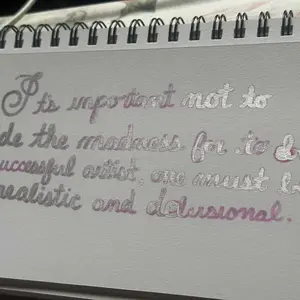 It's important not to
de the madness for to
uccessful artist, one must b
realistic and delusional.